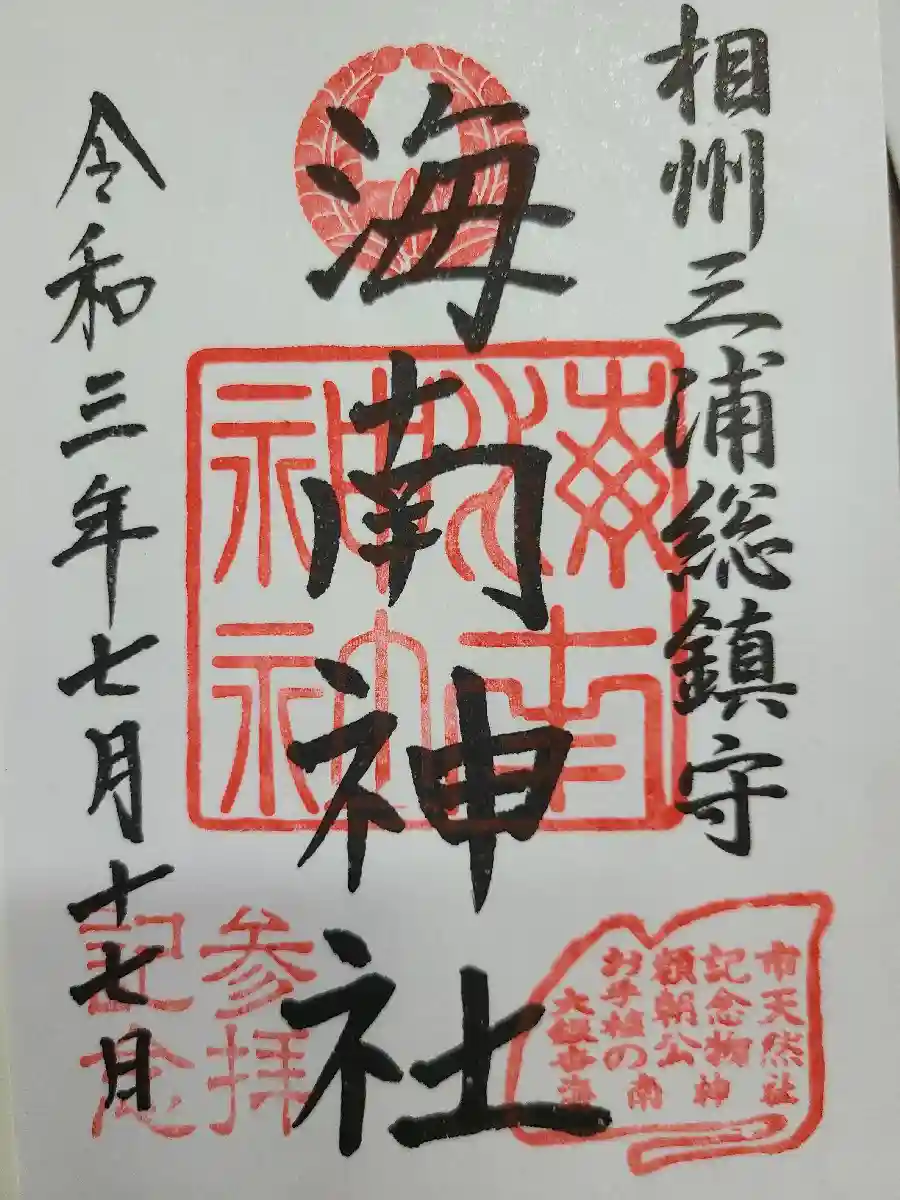 相州三浦総鎮守
海南神社
令和三年七月十七日
海南
神社
参拝
記念
市天然
記念物
頼朝公
お手植の
大銀杏
海南神社